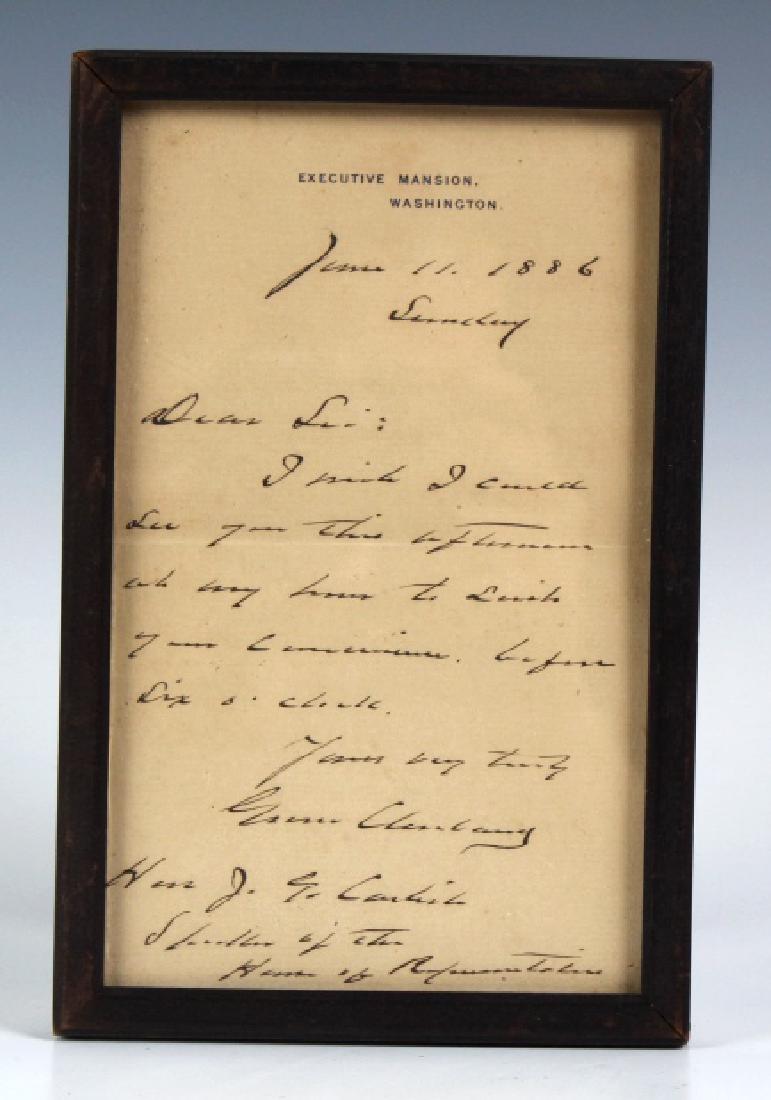 EXECUTIVE MANSION,
WASHINGTON.
June 11. 1886
Sunday
Dear Sir:
I wish I could
see you this afternoon
at any hour to suit
your convenience, before
six o'clock.
Yours very truly
Grover Cleveland
Hon J. G. Carlisle
Speaker of the
House of Representatives